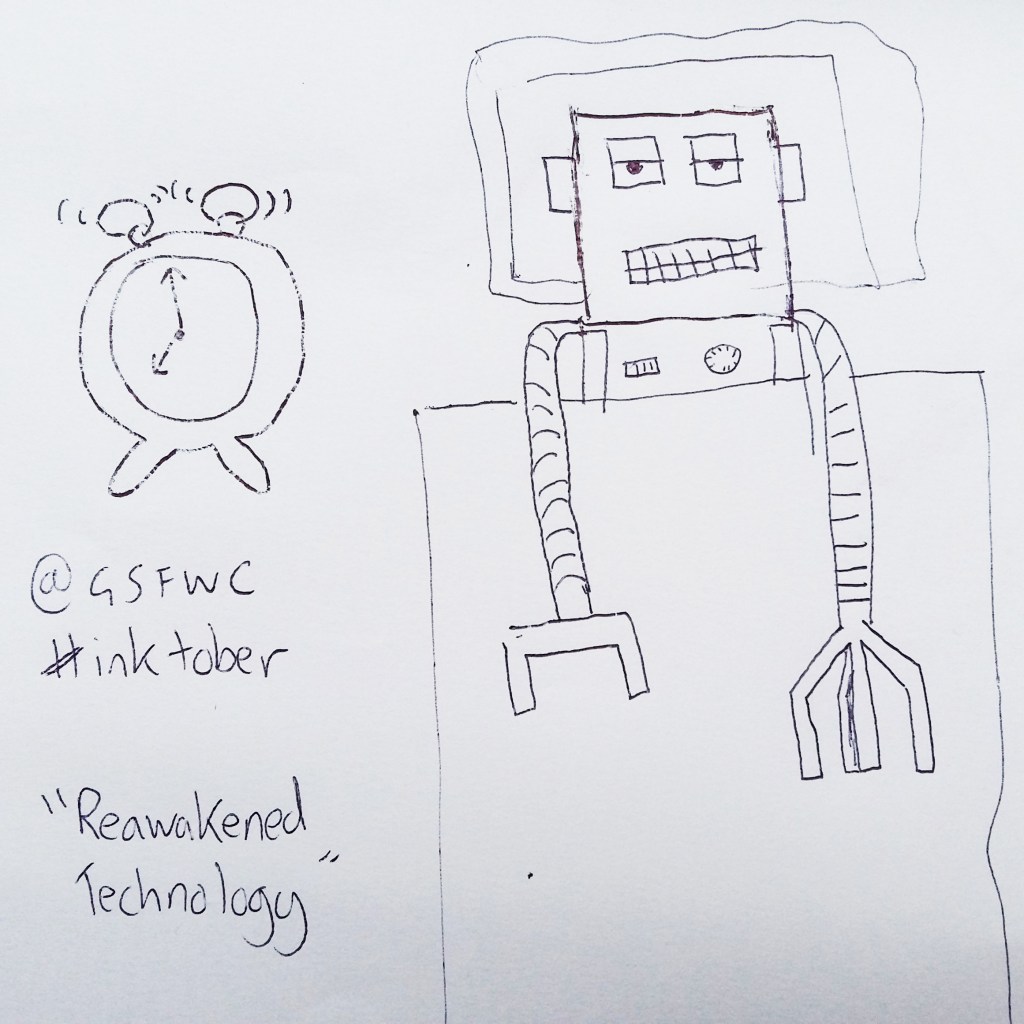 @GSFWC
#inktober
"Reawakened
Technology"